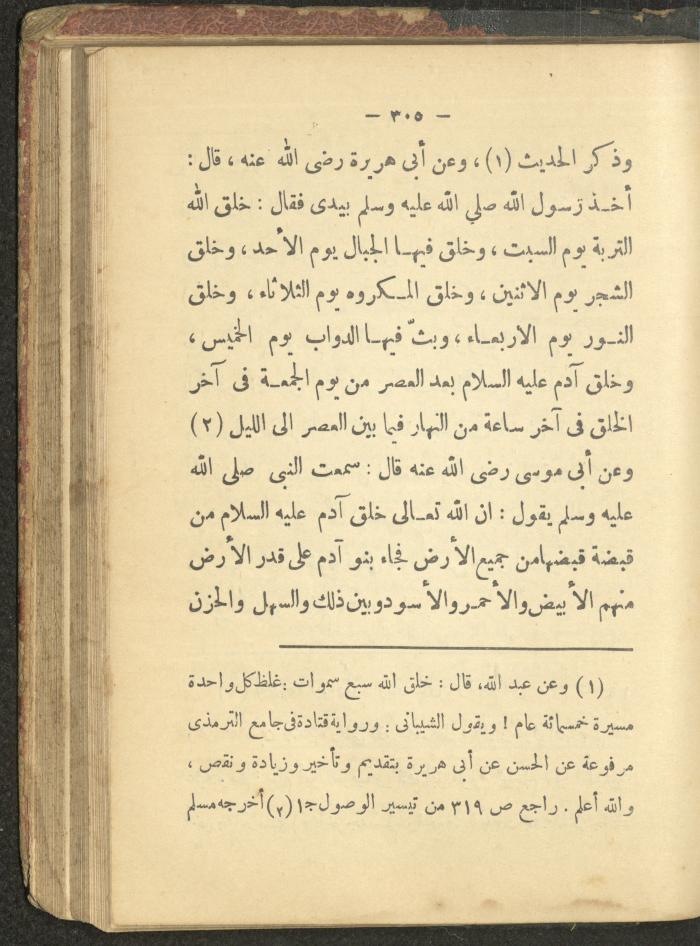 — ٣٠٥ —
وذكر الحديث (١) ، وعن أبى هريرة رضى الله عنه ، قال :
أخـذ رسول الله صلي الله عليه وسلم بيدى فقال : خلق الله
التربة يوم السبت ، وخلق فيهـا الجبال يوم الأحد ، وخلق
الشجر يوم الاثنين ، وخلق المـكروه يوم الثلاثاء ، وخلق
النـور يوم الاربعـاء ، وبثّ فيهـا الدواب يوم الخميس ،
وخلق آدم عليه السلام بعد العصر من يوم الجمعـة فى آخر
الخلق فى آخر ساعة من النهار فيما بين العصر الى الليل (٢)
وعن أبى موسى رضى الله عنه قال : سمعت النبى صلى الله
عليه وسلم يقول : ان الله تعـالى خلق آدم عليه السلام من
قبضة قبضهامن جميع الأرض فجاء بنو آدم على قدر الأرض
منهم الأبيض والأحمـر والأسود وبين ذلك والسهل والحزن
(١) وعن عبد الله، قال : خلق الله سبع سموات : غلظ كل واحدة
مسيرة خمسمائة عام ! ويقول الشيبانى : ورواية قتادة فى جامع الترمذى
مرفوعة عن الحسن عن أبى هريرة بتقديم وتأخير وزيادة ونقص ،
والله أعلم . راجع ص ٣١٩ من تيسير الوصول جـ١ (٢) أخرجه مسلم